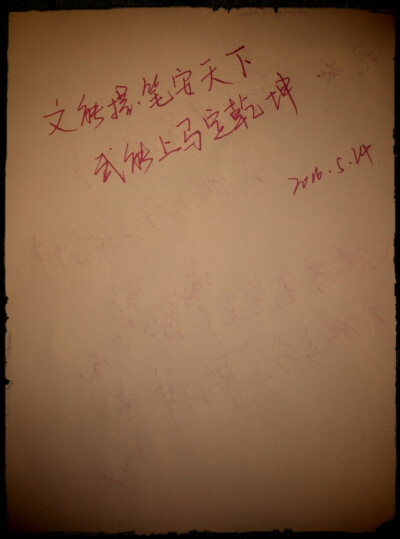 文能提笔安天下
武能上马定乾坤
2016.5.24